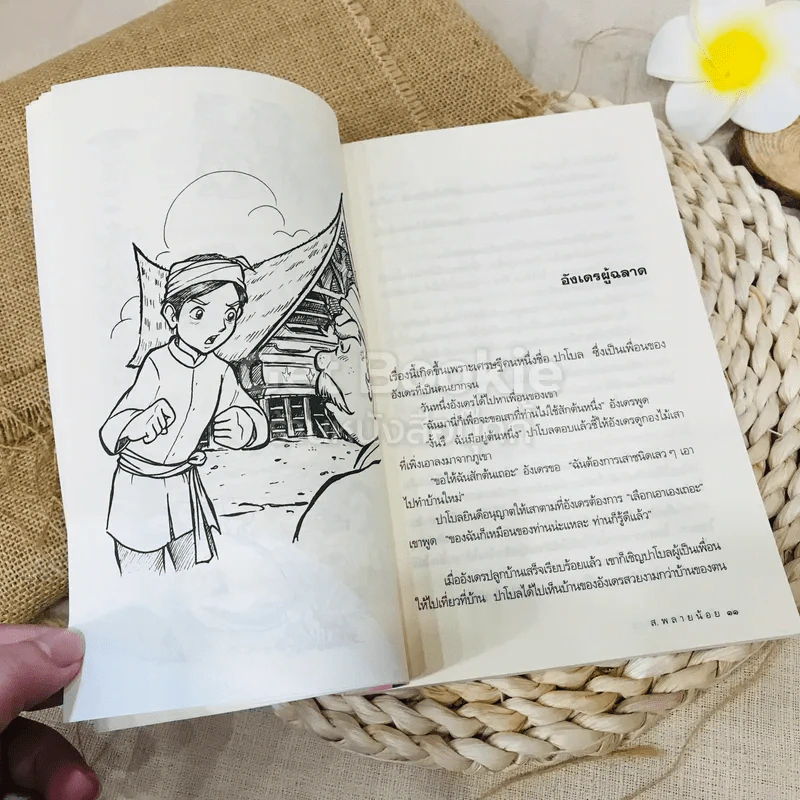 อังเดรผู้ฉลาด
เรื่องนี้เกิดขึ้นเพราะเศรษฐีคนหนึ่งชื่อ ปาโบล ซึ่งเป็นเพื่อนของ
อังเดรที่เป็นคนยากจน
วันหนึ่งอังเดรได้ไปหาเพื่อนของเขา
"ฉันมานี่ก็เพื่อจะขอเสาที่ท่านไม่ใช้สักต้นหนึ่ง" อังเดรพูด
"งั้นรึ ฉันมีอยู่ต้นหนึ่ง" ปาโบลตอบแล้วชี้ให้อังเดรดูกองไม้เสา
ที่เพิ่งเอาลงมาจากภูเขา
"ขอให้ฉันสักต้นเถอะ" อังเดรขอ "ฉันต้องการเสาชนิดเลว ๆ เอา
ไปทำบ้านใหม่"
ปาโบลยินดีอนุญาตให้เสาตามที่อังเดรต้องการ "เลือกเอาเองเถอะ"
เขาพูด "ของฉันก็เหมือนของท่านน่ะแหละ ท่านก็รู้ดีแล้ว"
เมื่ออังเดรปลูกบ้านเสร็จเรียบร้อยแล้ว เขาก็เชิญปาโบลผู้เป็นเพื่อน
ให้ไปเที่ยวที่บ้าน ปาโบลได้ไปเห็นบ้านของอังเดรสวยงามกว่าบ้านของตน
ส.พลายน้อย ๑๑